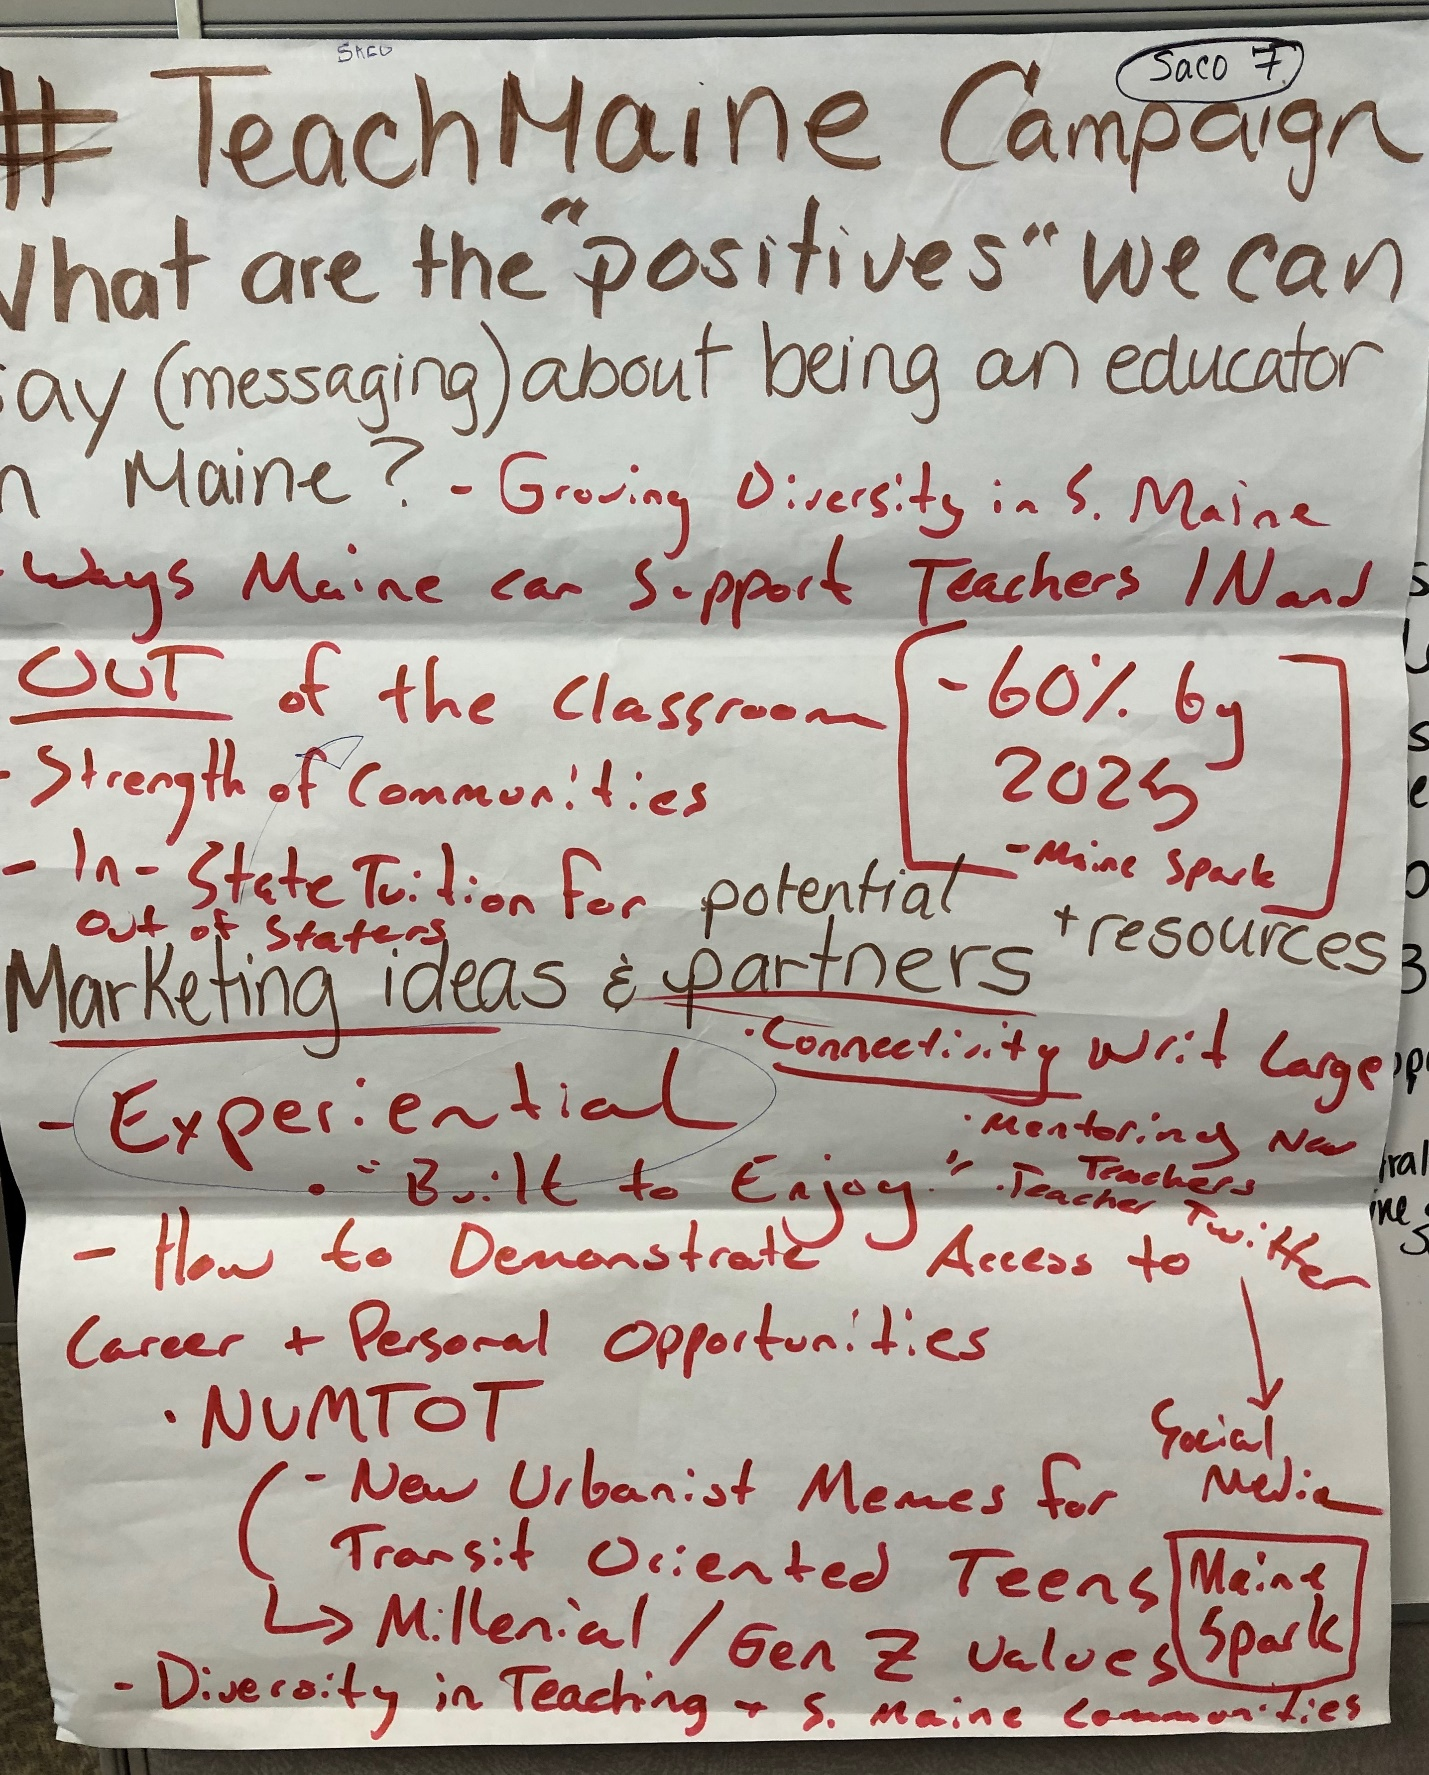 SACO
Saco 7
# TeachMaine Campaign
What are the "positives" we can
say (messaging) about being an educator
in Maine? - Growing Diversity in S. Maine
- Ways Maine can Support Teachers IN and
OUT of the Classroom
- 60% by
2025
- Maine Spark
- Strength of Communities
- In-State Tuition for
Out of Staters
Marketing ideas & potential partners + resources
- Experiential
• "Built to Enjoy."
• Connectivity Writ Large
• Mentoring New
Teachers
• Teacher Twitter
Social
Media
- How to Demonstrate Access to
Career + Personal Opportunities
• NUMTOT
- New Urbanist Memes for
Transit Oriented Teens
Millenial / Gen Z values
Maine
Spark
- Diversity in Teaching + S. Maine Communities